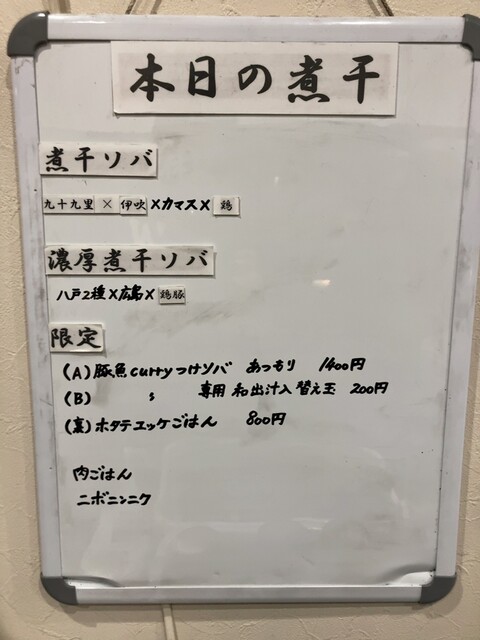 本日の煮干
煮干ソバ
九十九里×伊吹×カマス×鶏
濃厚煮干ソバ
八戸2種×広島×鶏豚
限定
(A)豚魚curryつけソバ あつもり 1400円
(B) 〻 専用 和出汁入替え玉 200円
(裏)ホタテユッケごはん 800円
肉ごはん
ニボニンニク